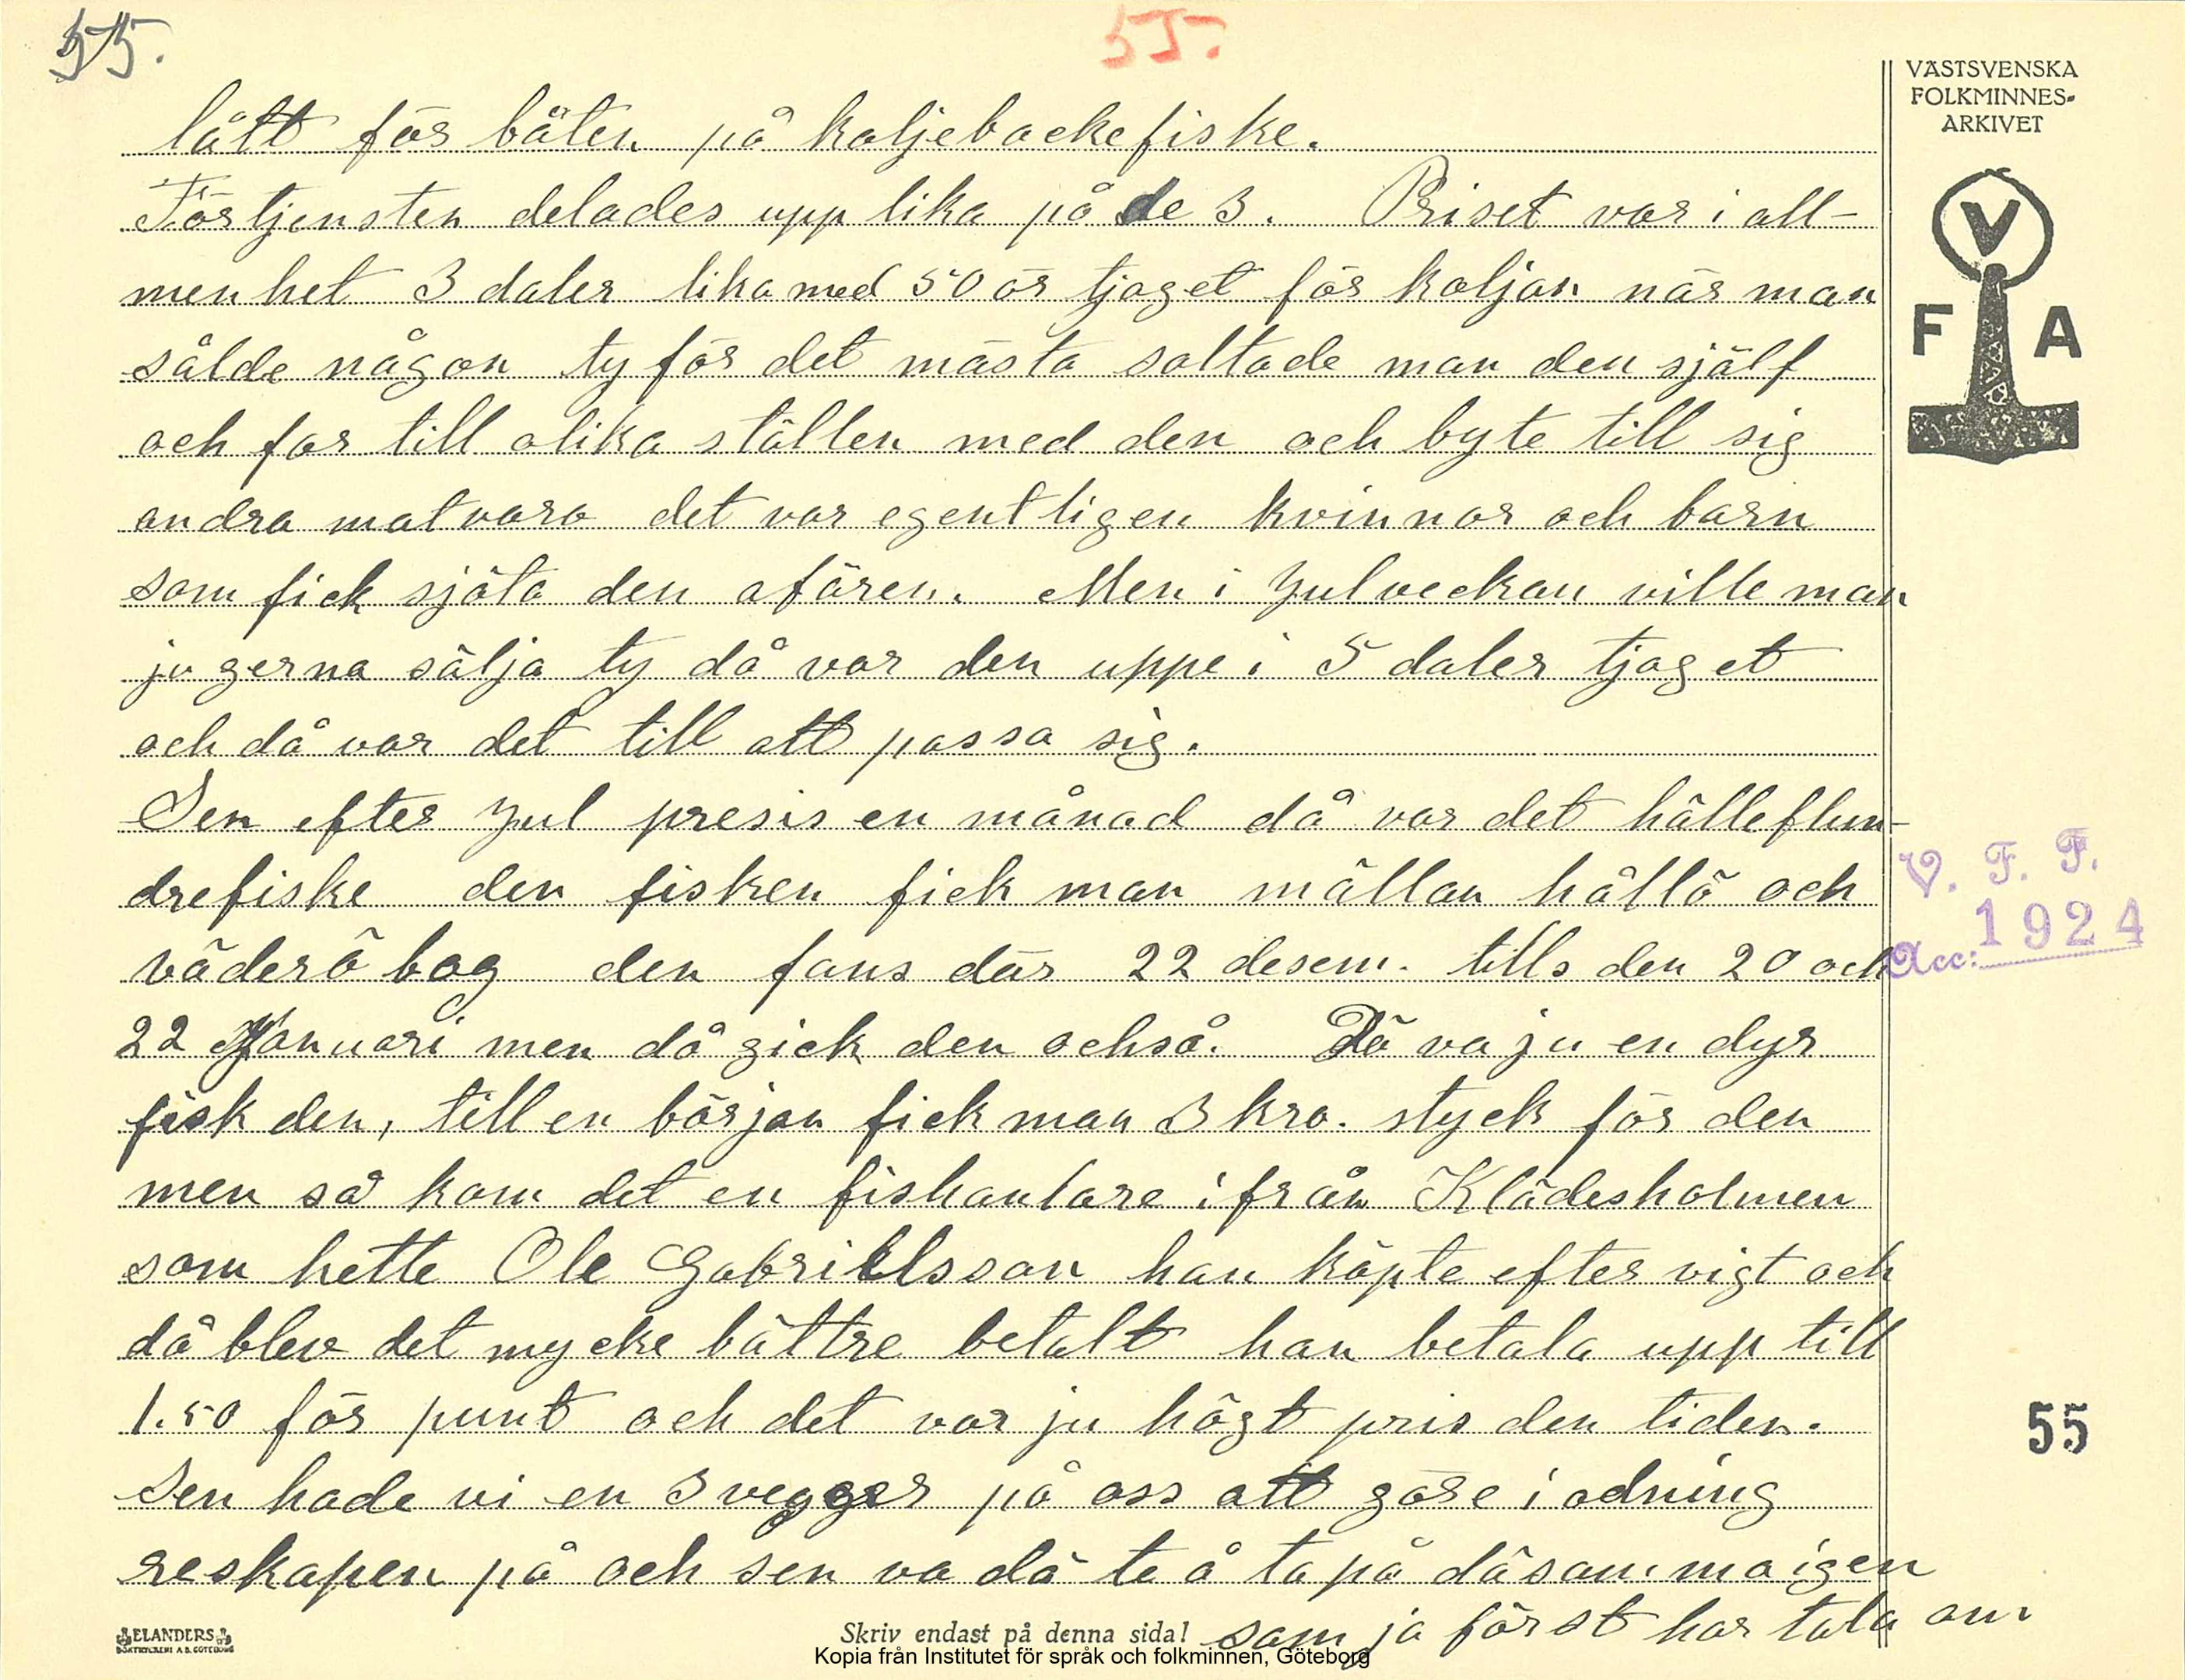 55.
55.
VÄSTSVENSKA
FOLKMINNES-
ARKIVET
V
F A
lått för båten på koljebackefiske.
Förtjensten delades upp lika på de 3. Priset var i all-
menhet 3 daler lika med 50 ör tjoget för koljan när man
sålde någon ty för det mästa saltade man den själf
och for till olika ställen med den och byte till sig
andra matvara det var egentligen kvinnor och barn
som fick sjöta den afären. Men i Julveckan ville man
ju gerna sälja ty då var den uppe i 5 daler tjoget
och då var det till att passa sig.
Sen efter Jul presis en månad då var det hälleflun-
drefiske den fisken fick man mällan hållö och
väderö bog den fans där 22 desem. tills den 20 och
22 Januari men då gick den också. Dä va ju en dyr
fisk den, till en början fick man 3 kro. styck för den
men så kom det en fiskanlare ifrån Klädesholmen
som hette Ole Gabrielsson han köpte efter vigt och
då blev det mycke bättre betalt han betala upp till
1.50 för punt och det var ju högt pris den tiden.
Sen hade vi en 3 vegger på oss att göre i odning
reskapen på och sen va dä te å ta på däsamma igen
som ja först har tala om
V. F. F.
Acc: 1924
55
ELANDERS
BOKTRYCKERI A.B. GÖTEBORG
Skriv endast på denna sida!
Kopia från Institutet för språk och folkminnen, Göteborg